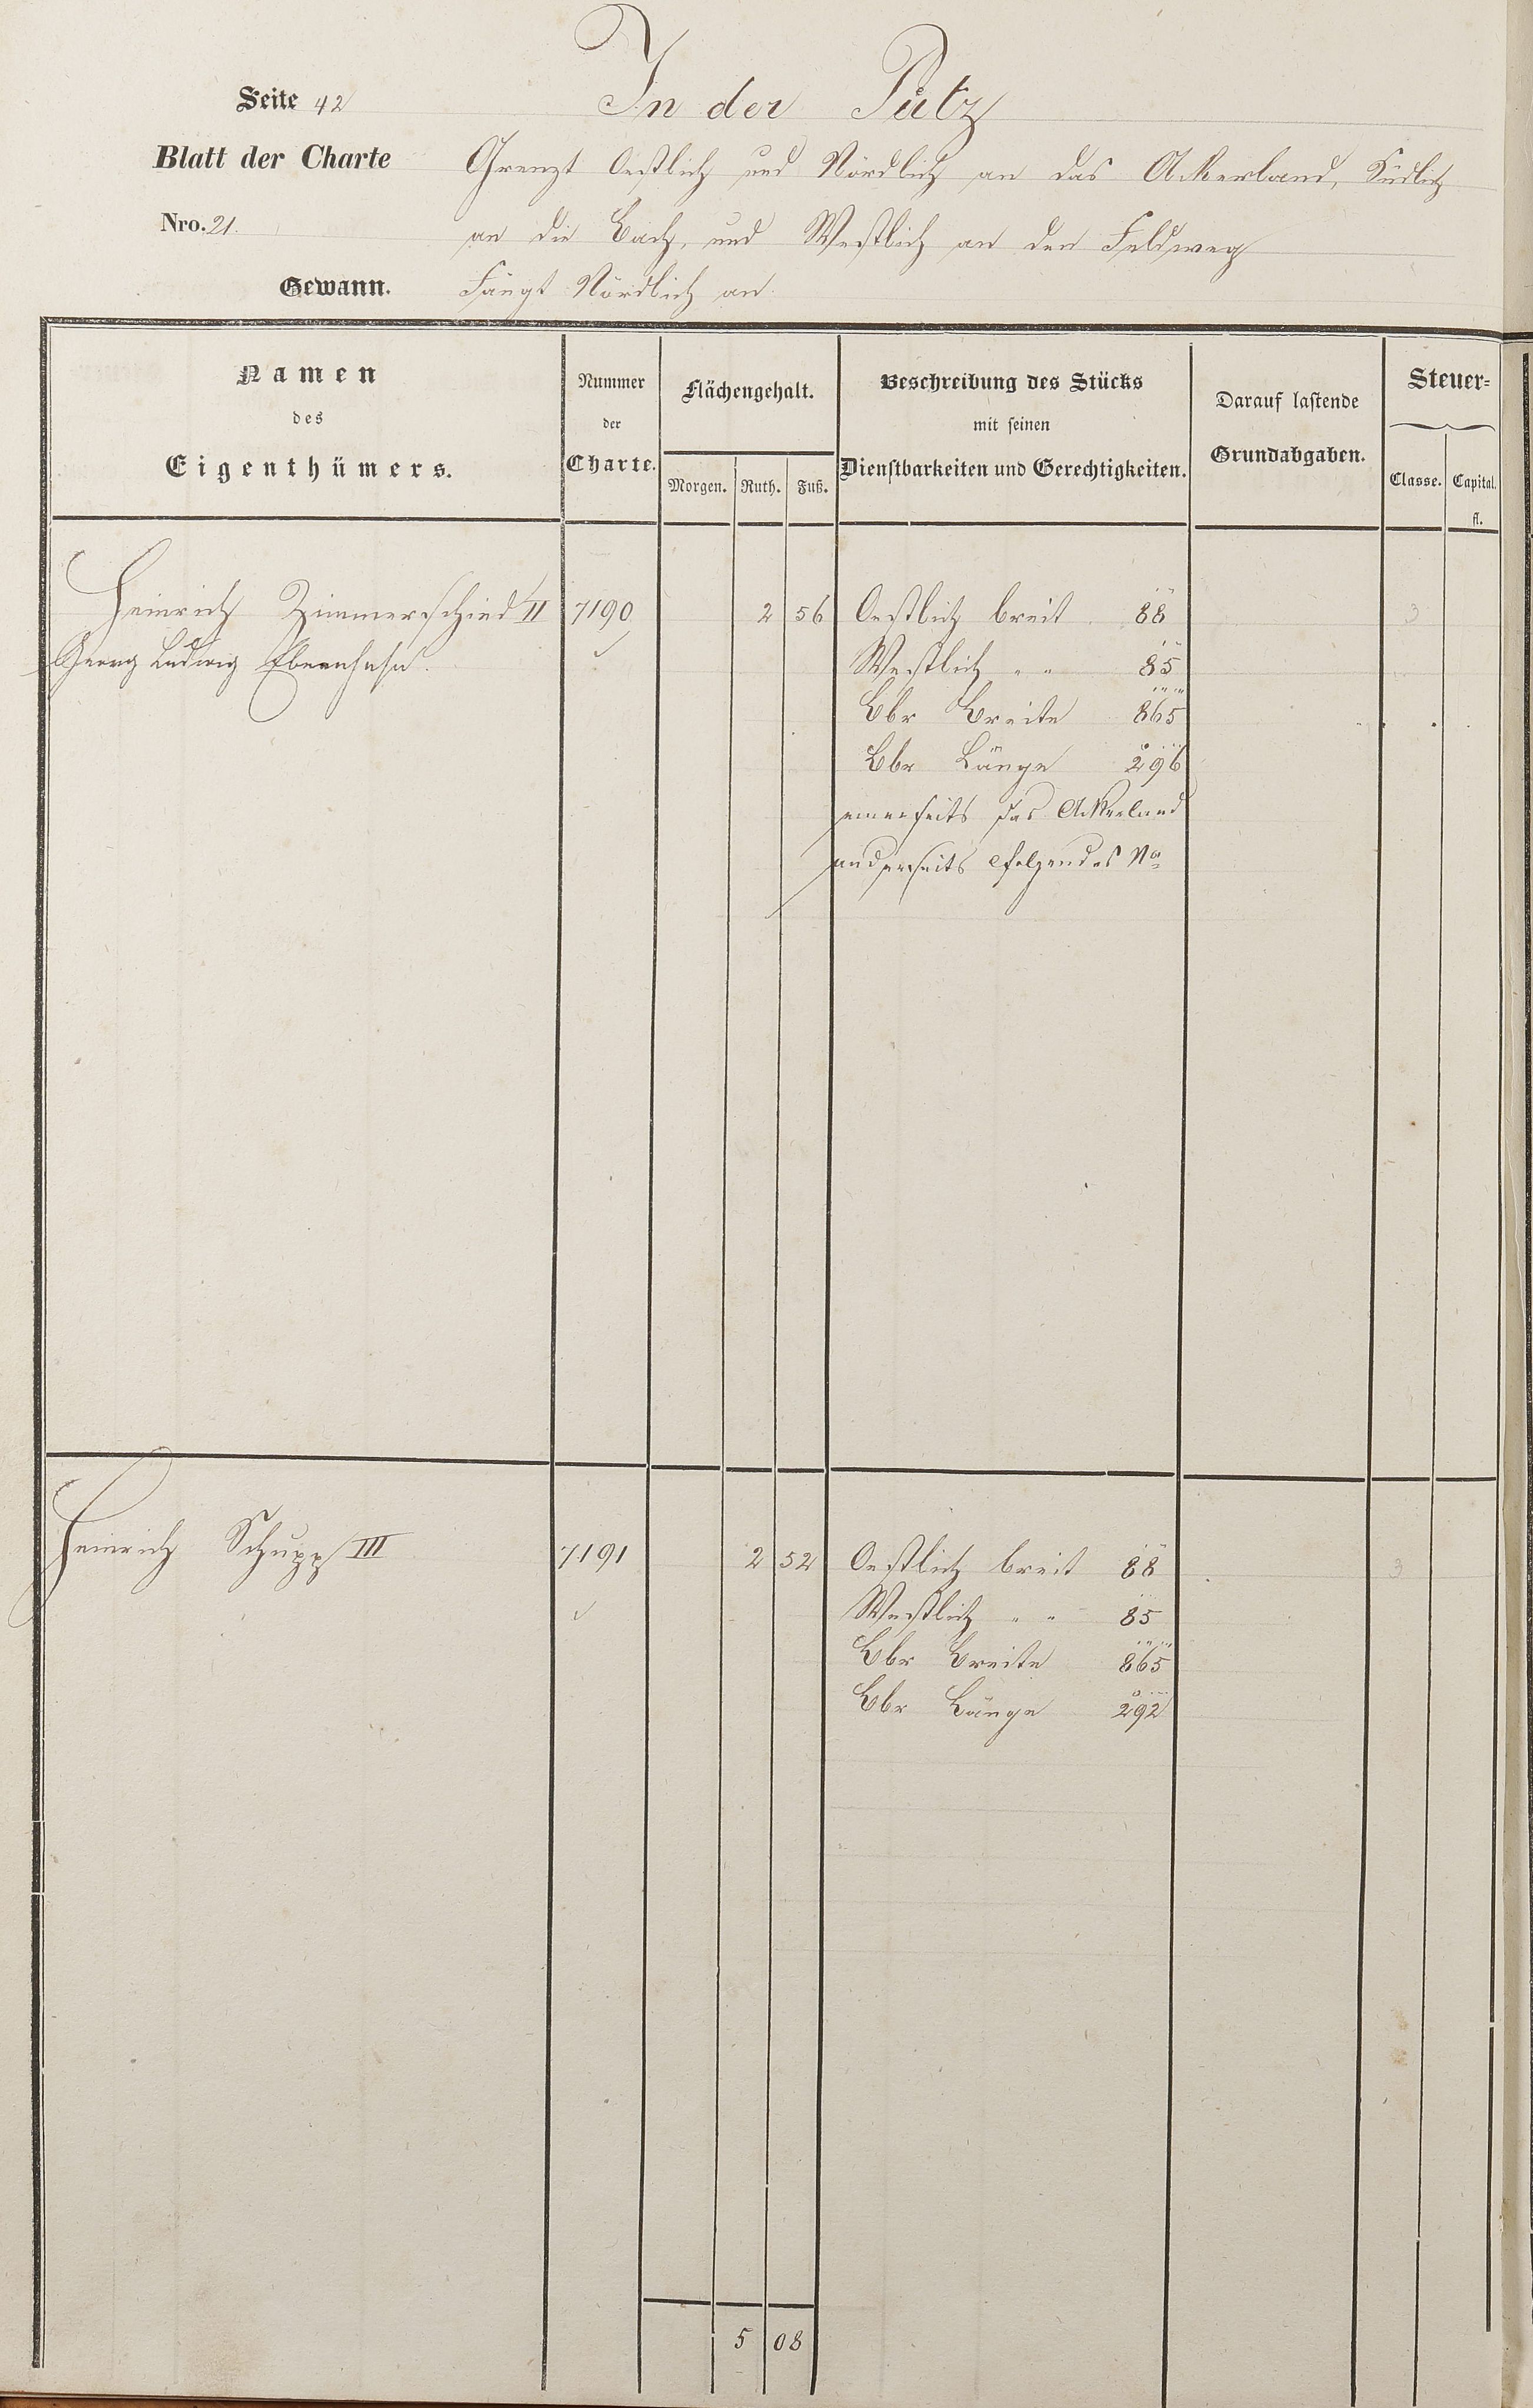 Seite 42
In der Pütz
Blatt der Charte
Grenzt Oestlich und Nördlich an das Ackerland, Südlich
Nro. 21.
an die Bach, und Westlich an den Feldweg
Gewann.
Fängt Nördlich an
Namen
des
Eigenthümers.
Nummer
der
Charte.
Flächengehalt.
Morgen. Ruth. Fuß.
Beschreibung des Stücks
mit seinen
Dienstbarkeiten und Gerechtigkeiten.
Darauf lastende
Grundabgaben.
Steuer-
Classe. Capital.
fl.
Heinrich Zimmerschied II 7190 2 56 Oestlich breit 88 3
Georg Ludwig Westlich " " 85
Breite 865
Länge 296
einerseits das Ackerland
anderseits folgendes No
Heinrich Schupp III 7191 2 52 Oestlich breit 88 3
Westlich " " 85
Breite 865
Länge 292
5 08